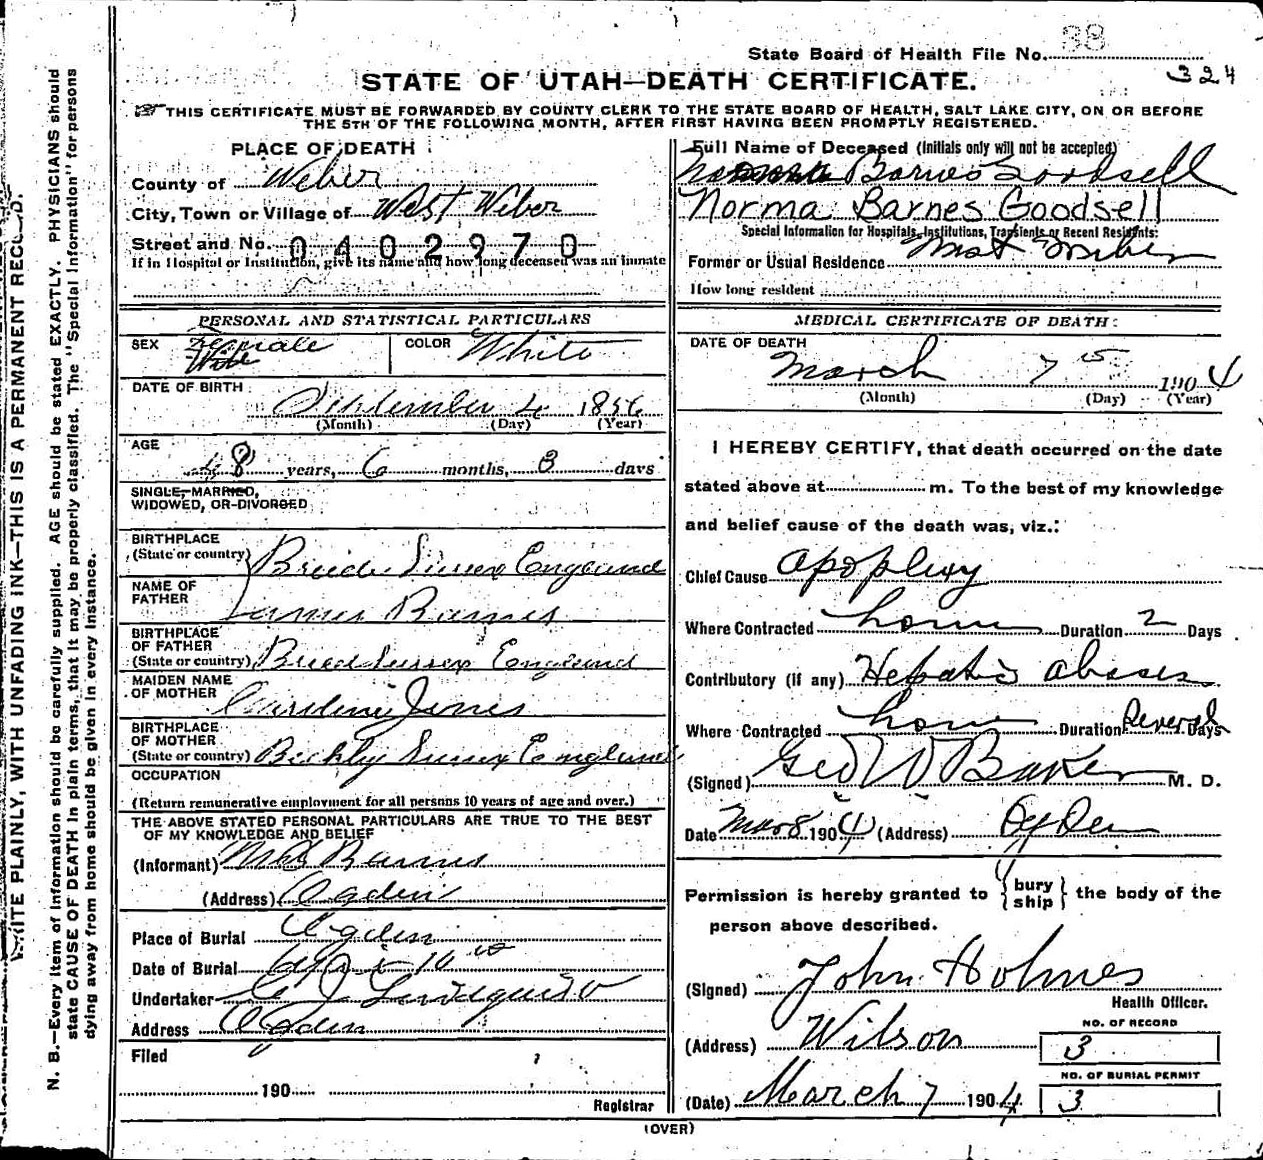 State Board of Health File No. 38
324
STATE OF UTAH—DEATH CERTIFICATE.
THIS CERTIFICATE MUST BE FORWARDED BY COUNTY CLERK TO THE STATE BOARD OF HEALTH, SALT LAKE CITY, ON OR BEFORE
THE 5TH OF THE FOLLOWING MONTH, AFTER FIRST HAVING BEEN PROMPTLY REGISTERED.
WRITE PLAINLY, WITH UNFADING INK—THIS IS A PERMANENT RECORD.
N. B.—Every item of information should be carefully supplied. AGE should be stated EXACTLY. PHYSICIANS should
state CAUSE OF DEATH in plain terms, that it may be properly classified. The "Special Information" for persons
dying away from home should be given in every instance.
PLACE OF DEATH
County of Weber
City, Town or Village of West Weber
Street and No. 0402970
If in Hospital or Institution, give its name and how long deceased was an inmate
PERSONAL AND STATISTICAL PARTICULARS
SEX Female
COLOR White
DATE OF BIRTH
September 4 1856
(Month) (Day) (Year)
AGE
8 years, 6 months, 3 days
SINGLE, MARRIED,
WIDOWED, OR DIVORCED
BIRTHPLACE
(State or country) Brede Sussex England
NAME OF
FATHER James Barnes
BIRTHPLACE
OF FATHER
(State or country) Brede Sussex England
MAIDEN NAME
OF MOTHER Caroline Jones
BIRTHPLACE
OF MOTHER
(State or country) Beckley Sussex England
OCCUPATION
(Return remunerative employment for all persons 10 years of age and over.)
THE ABOVE STATED PERSONAL PARTICULARS ARE TRUE TO THE BEST
OF MY KNOWLEDGE AND BELIEF
(Informant) Barnes
(Address) Ogden
Place of Burial Ogden
Date of Burial 10
Undertaker
Address Ogden
Filed
190
Registrar
Full Name of Deceased (Initials only will not be accepted)
Barnes Goodsell
Norma Barnes Goodsell
Special Information for Hospitals, Institutions, Transients or Recent Residents:
Former or Usual Residence West Weber
How long resident
MEDICAL CERTIFICATE OF DEATH:
DATE OF DEATH
March 7 1904
(Month) (Day) (Year)
I HEREBY CERTIFY, that death occurred on the date
stated above at m. To the best of my knowledge
and belief cause of the death was, viz.:
Chief Cause apoplexy
Where Contracted home Duration 2 Days
Contributory (if any) Hepatic abscess
Where Contracted home Duration Several Days
(Signed) Geo W Baker M. D.
Date Mar 8 1904 (Address) Ogden
Permission is hereby granted to bury ship the body of the
person above described.
(Signed) John Holmes
Health Officer.
(Address) Wilson
NO. OF RECORD
3
NO. OF BURIAL PERMIT
(Date) March 7 1904 3
(OVER)